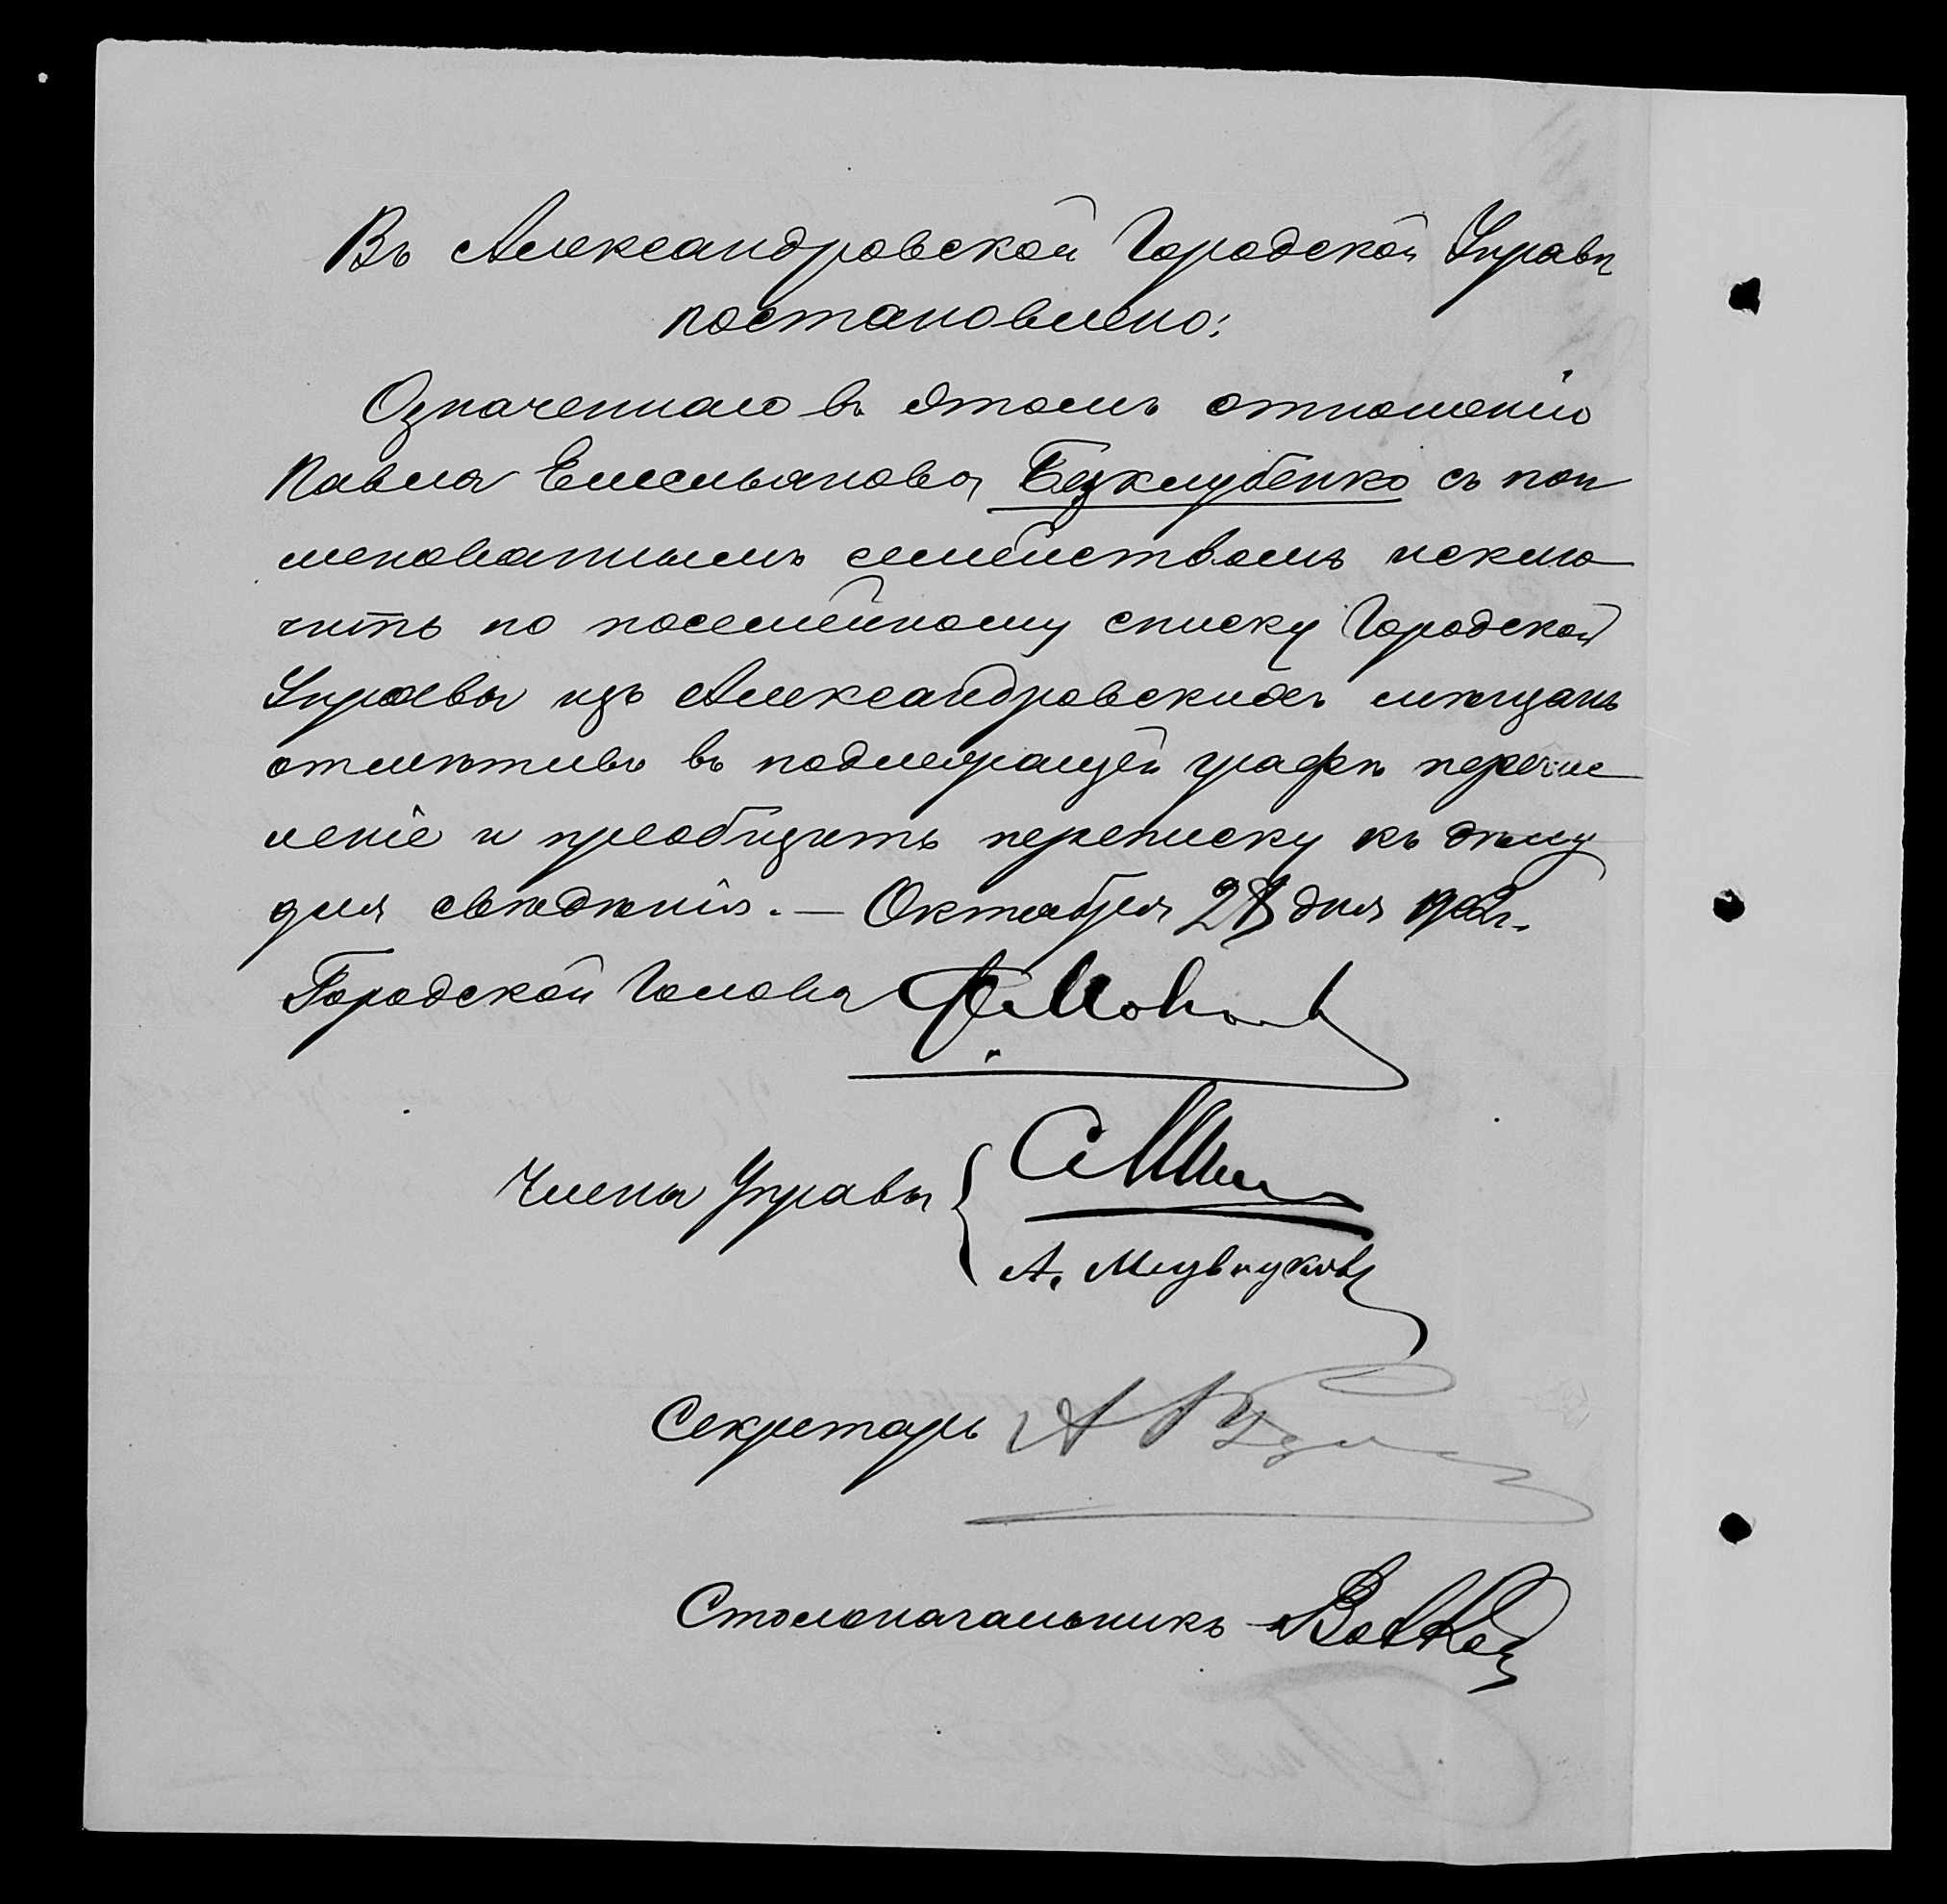 Въ Александровской Городской Управѣ
постановлено:
Означеннаго въ этомъ отношеніи
Павла Емельянова Безклубенко съ пои
менованнымъ семействомъ исклю
чить по посемейному списку Городской
Управы изъ Александровскихъ мѣщанъ
отмѣтивъ въ подлежащей графѣ перечис
леніе и пріобщить переписку къ дѣлу
для свѣдѣнія. — Октября 28 дня 1902 г.
Городской Голова Ф.
Члены Управы
А.
Секретарь А
Столоначальникъ